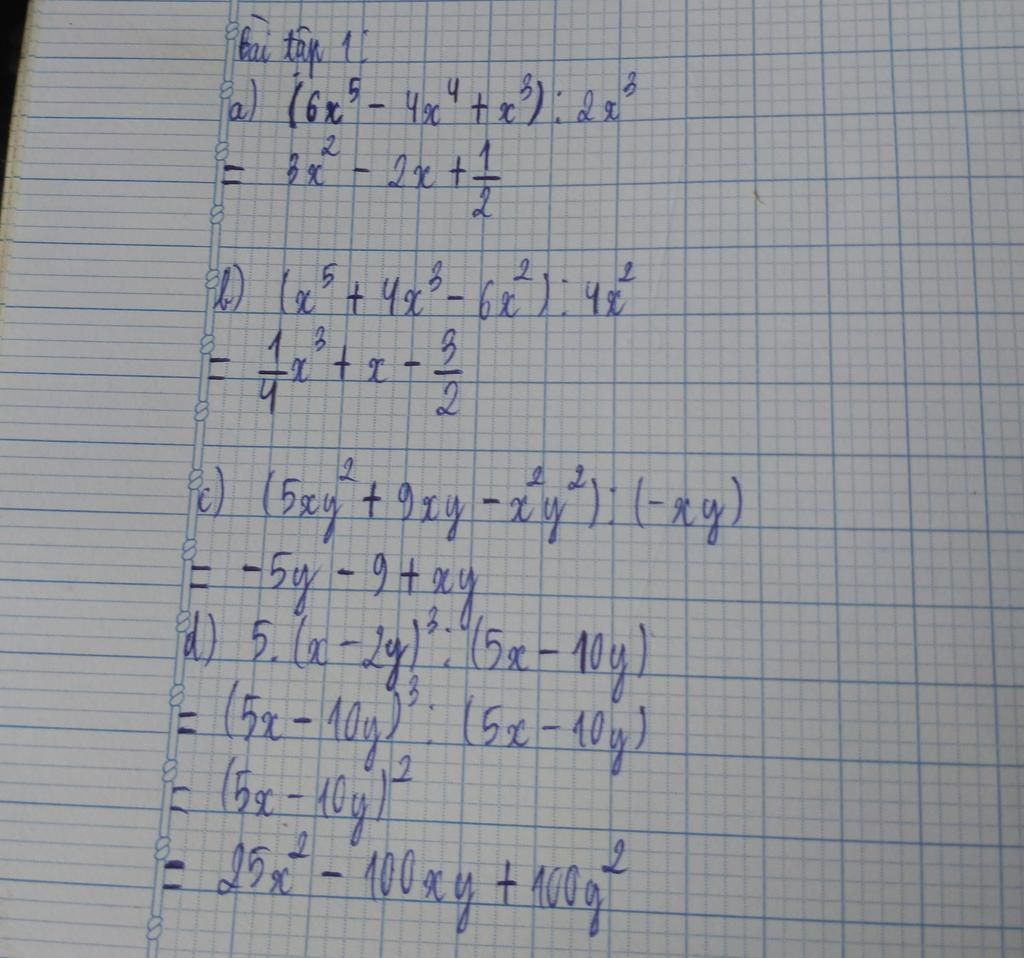 Bài tập 1:
a) (6x⁵ - 4x⁴ + x³) : 2x³
= 3x² - 2x + 1/2
b) (x⁵ + 4x³ - 6x²) : 4x²
= 1/4 x³ + x - 3/2
c) (5xy² + 9xy - x²y²) : (-xy)
= -5y - 9 + xy
d) 5.(x - 2y)³ : (5x - 10y)
= (5x - 10y)³ : (5x - 10y)
= (5x - 10y)²
= 25x² - 100xy + 100y²